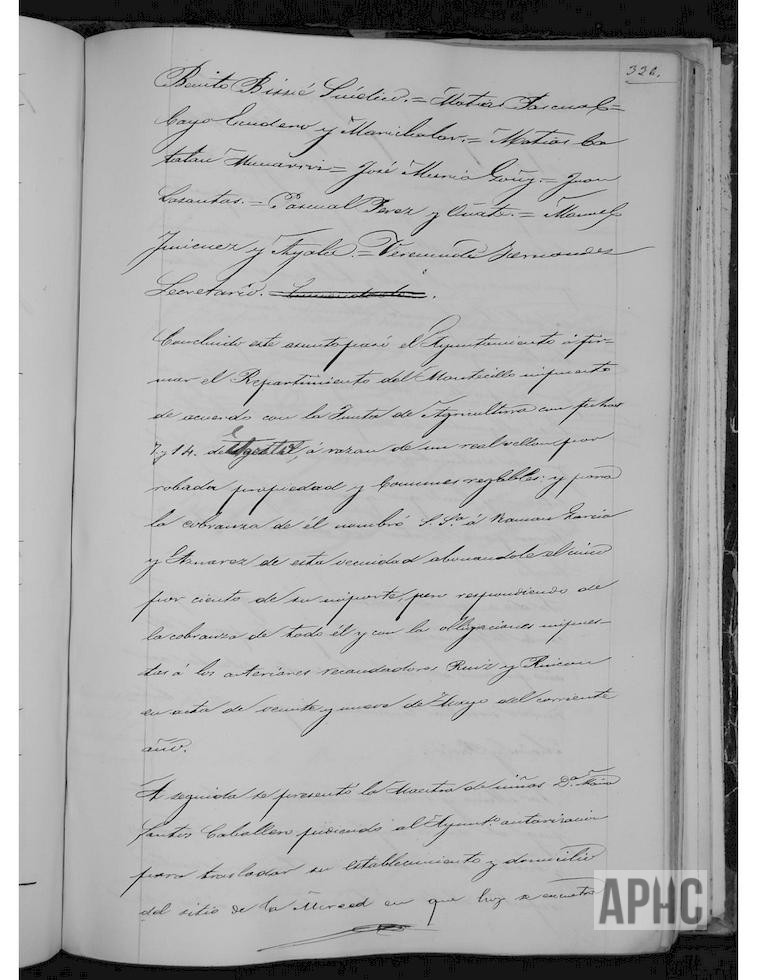 326.
Benito Bissié Síndico.= Matias Pascual=
Cayo Escudero y Marichalar.= Matias Ca
talan = José Muria Goñy.= Juan
Losantos.= Pascual Perez y Oñate.= Manuel
Jimenez y Ayala.= Veremundo Hernandez
Secretario.
Concluido este asunto pasó el Ayuntamiento á fir-
mar el Repartimiento del Monticillo impuesto
de acuerdo con la Junta de Agricultura con fechas
7 y 14. de á razon de un real vellon por
robada propiedad y Comunes regables: y para
la cobranza de él nombró S. Sª á Ramon Garcia
y Aznarez de esta vecindad abonandole el cinco
por ciento de su importe, pero respondiendo de
la cobranza de todo él y con la obligaciones impues-
tas á los anteriores recaudadores Ruiz y Rincon
en acta de veinte y nueve de Mayo del corriente
año.
A seguida se presentó la Maestra de niñas Dª
Santos Caballero pidiendo al Ayuntº autorizacion
para trasladar su establecimiento y domicilio
del sitio de la Merced en que hoy se encuentra
APHC